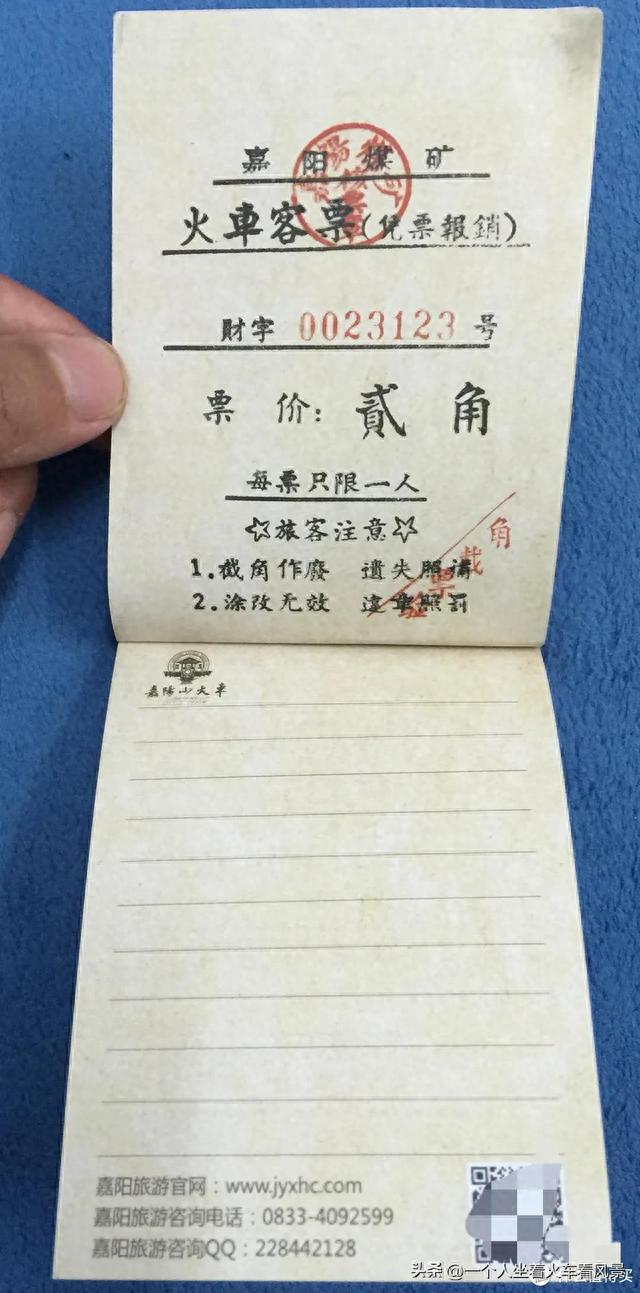 嘉阳煤矿
火車客票(凭票報銷)
財字 0023123 号
票价: 貳角
每票只限一人
☆旅客注意☆
1.截角作廢 遺失照購
2.涂改无效 違章照罰
验票截角
嘉陽小火車
嘉阳旅游官网:www.jyxhc.com
嘉阳旅游咨询电话:0833-4092599
嘉阳旅游咨询QQ:228442128
头条 @一个人坐着火车看风景